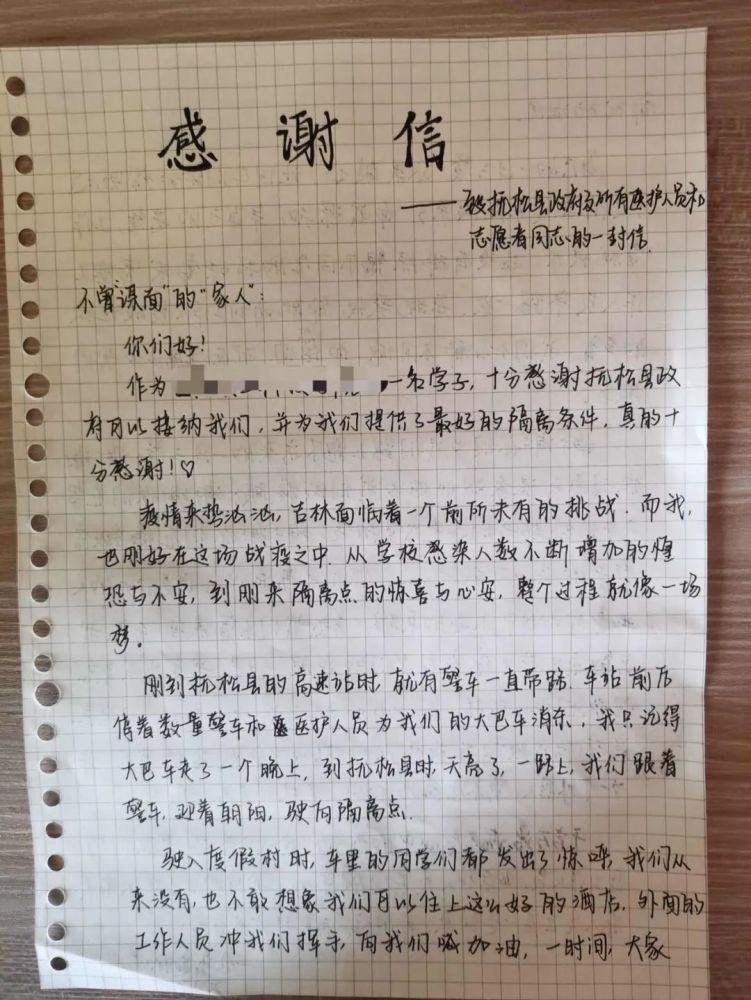 感谢信
——致抚松县政府及所有医护人员和
志愿者同志的一封信
不曾"谋面"的"家人":
你们好!
作为 一名学子,十分感谢抚松县政
府可以接纳我们,并为我们提供了最好的隔离条件,真的十
分感谢!♡
疫情来势汹汹,吉林面临着一个前所未有的挑战.而我,
也刚好在这场战疫之中.从学校感染人数不断增加的惶
恐与不安,到刚来隔离点的惊喜与心安,整个过程就像一场
梦。
刚到抚松县的高速站时,就有警车一直带路.车站前后
停着数量警车和医护人员为我们的大巴车消杀,我只记得
大巴车走了一个晚上,到抚松县时,天亮了,一路上,我们跟着
警车,迎着朝阳,驶向隔离点.
驶入度假村时,车里的同学们都发出了惊呼,我们从
来没有,也不敢想象我们可以住上这么好的酒店.外面的
工作人员冲我们挥手,向我们喊加油,一时间,大家